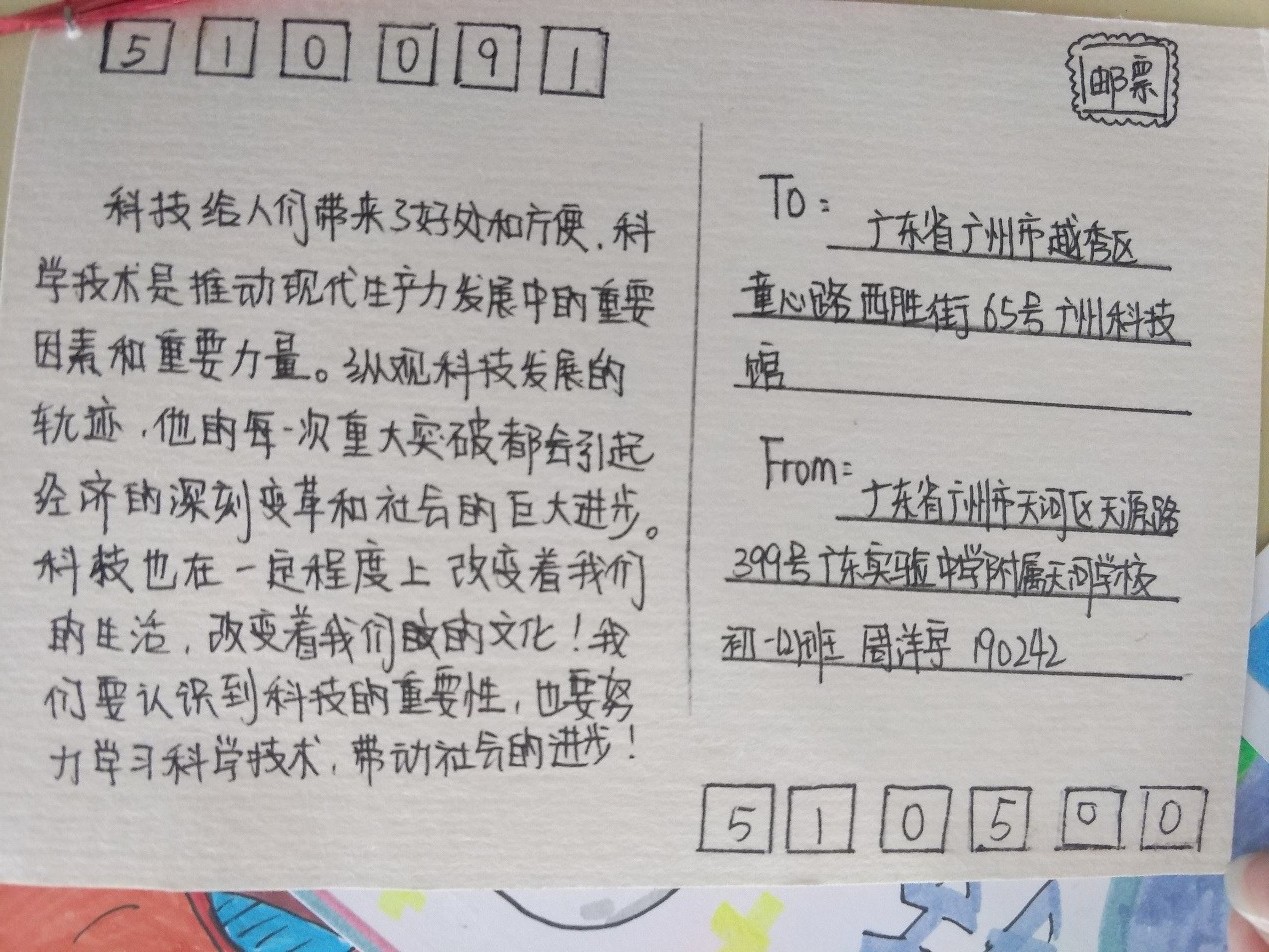 510091
邮票
科技给人们带来了好处和方便,科
学技术是推动现代生产力发展中的重要
因素和重要力量。纵观科技发展的
轨迹,他的每一次重大突破都会引起
经济的深刻变革和社会的巨大进步。
科技也在一定程度上改变着我们
的生活,改变着我们的文化!我
们要认识到科技的重要性,也要努
力学习科学技术,带动社会的进步!
To:
广东省广州市越秀区
童心路西胜街65号广州科技
馆
From:
广东省广州市天河区天源路
399号广东实验中学附属天河学校
初一(2)班 周洋宇 190242
510500